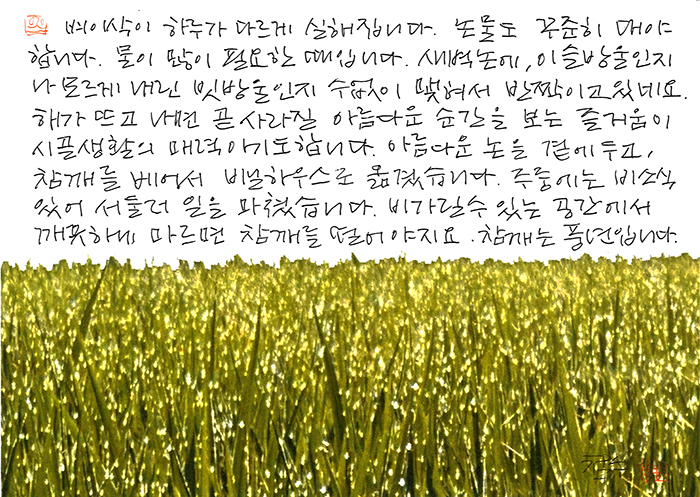 벼이삭이 하루가 다르게 실해집니다. 논물도 꾸준히 대야
합니다. 물이 많이 필요한 때입니다. 새벽논에, 이슬방울인지
나 모르게 내린 빗방울인지 수없이 맺혀서 반짝이고 있네요.
해가 뜨고 나면 곧 사라질 아름다운 순간을 보는 즐거움이
시골생활의 매력이기도합니다. 아름다운 논을 곁에 두고,
참깨를 베어서 비닐하우스로 옮겼습니다. 주중에는 비소식
있어 서둘러 일을 마쳤습니다. 비가릴수 있는 공간에서
깨끗하게 마르면 참깨를 털어야지요. 참깨는 풍년입니다.